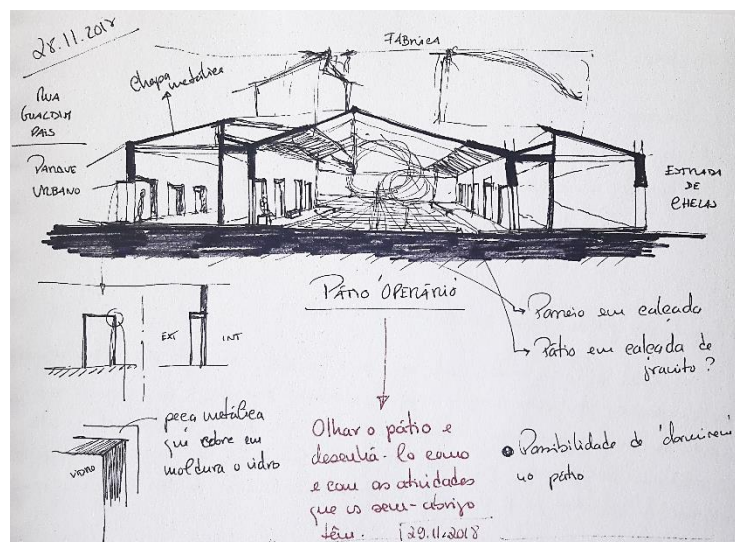 28.11.2018
FÁBRICA
Chapa metálica
RUA
GUALDIM
PAIS
PARQUE
URBANO
ESTRADA
DE
CHELAS
PÁTIO OPERÁRIO
Passeio em calçada
Pátio em calçada de
granito?
EXT
INT
peça metálica
que cobre em
moldura o vidro
VIDRO
Olhar o pátio e
desenhá-lo como
e com as atividades
que os sem-abrigo
têm. 29.11.2018
Possibilidade de
no pátio